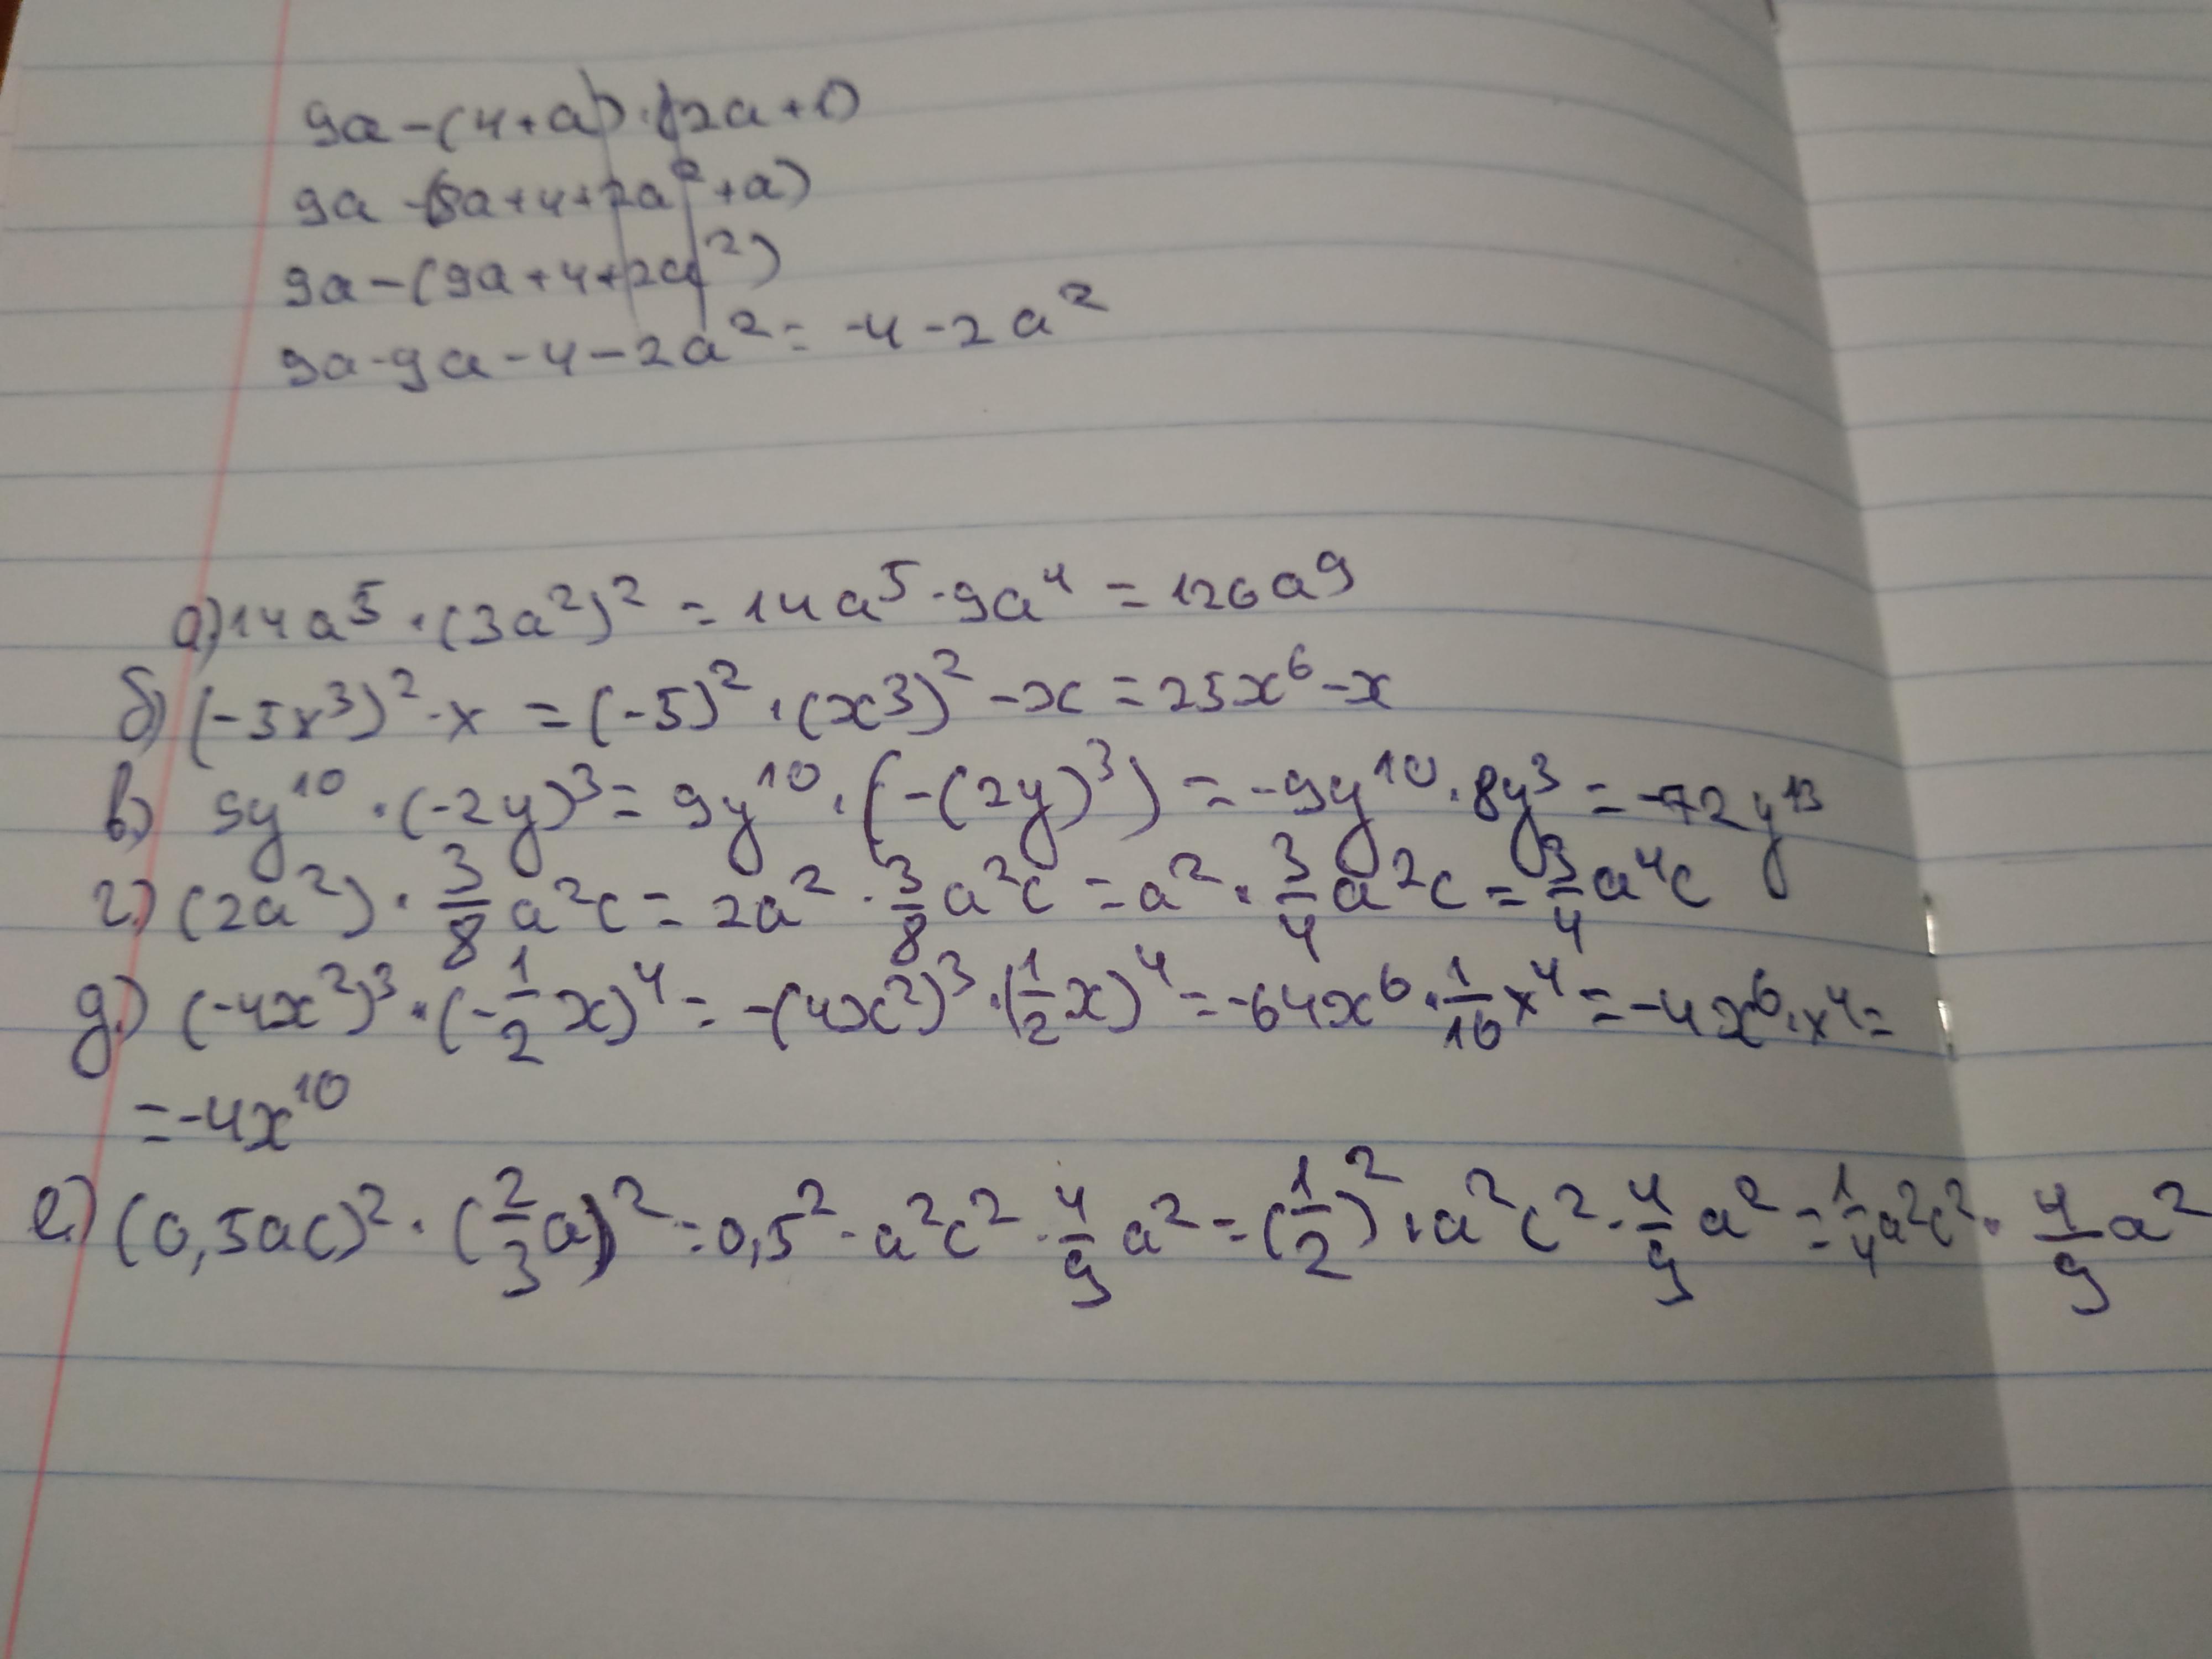 9a-(4+a)·(2a+1)
9a-(8a+4+2a²+a)
9a-(9a+4+2a²)
9a-9a-4-2a²=-4-2a²
а)14a⁵·(3a²)²=14a⁵·9a⁴=126a⁹
б)(-5x³)²-x=(-5)²·(x³)²-x=25x⁶-x
в) 9y¹⁰·(-2y)³=9y¹⁰·(-(2y)³)=-9y¹⁰·8y³=-72y¹³
г)(2a²)·3/8a²c=2a²·3/8a²c=a²·3/4a²c=3/4a⁴c
д.)(-4x²)³·(-1/2x)⁴=-(4x²)³·(1/2x)⁴=-64x⁶·1/16x⁴=-4x⁶·x⁴=
=-4x¹⁰
е.)(0,5ac)²·(2/3a)²=0,5²·a²c²·4/9a²=(1/2)²·a²c²·4/9a²=1/4a²c²·4/9a²